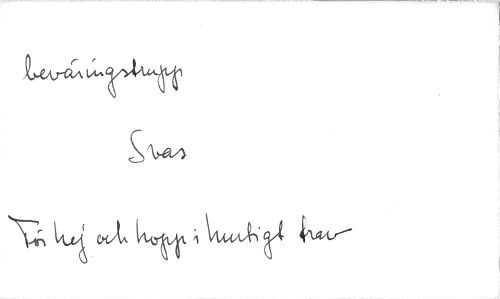 beväringstrupp
Svas
För hej och hopp i hurtigt trav